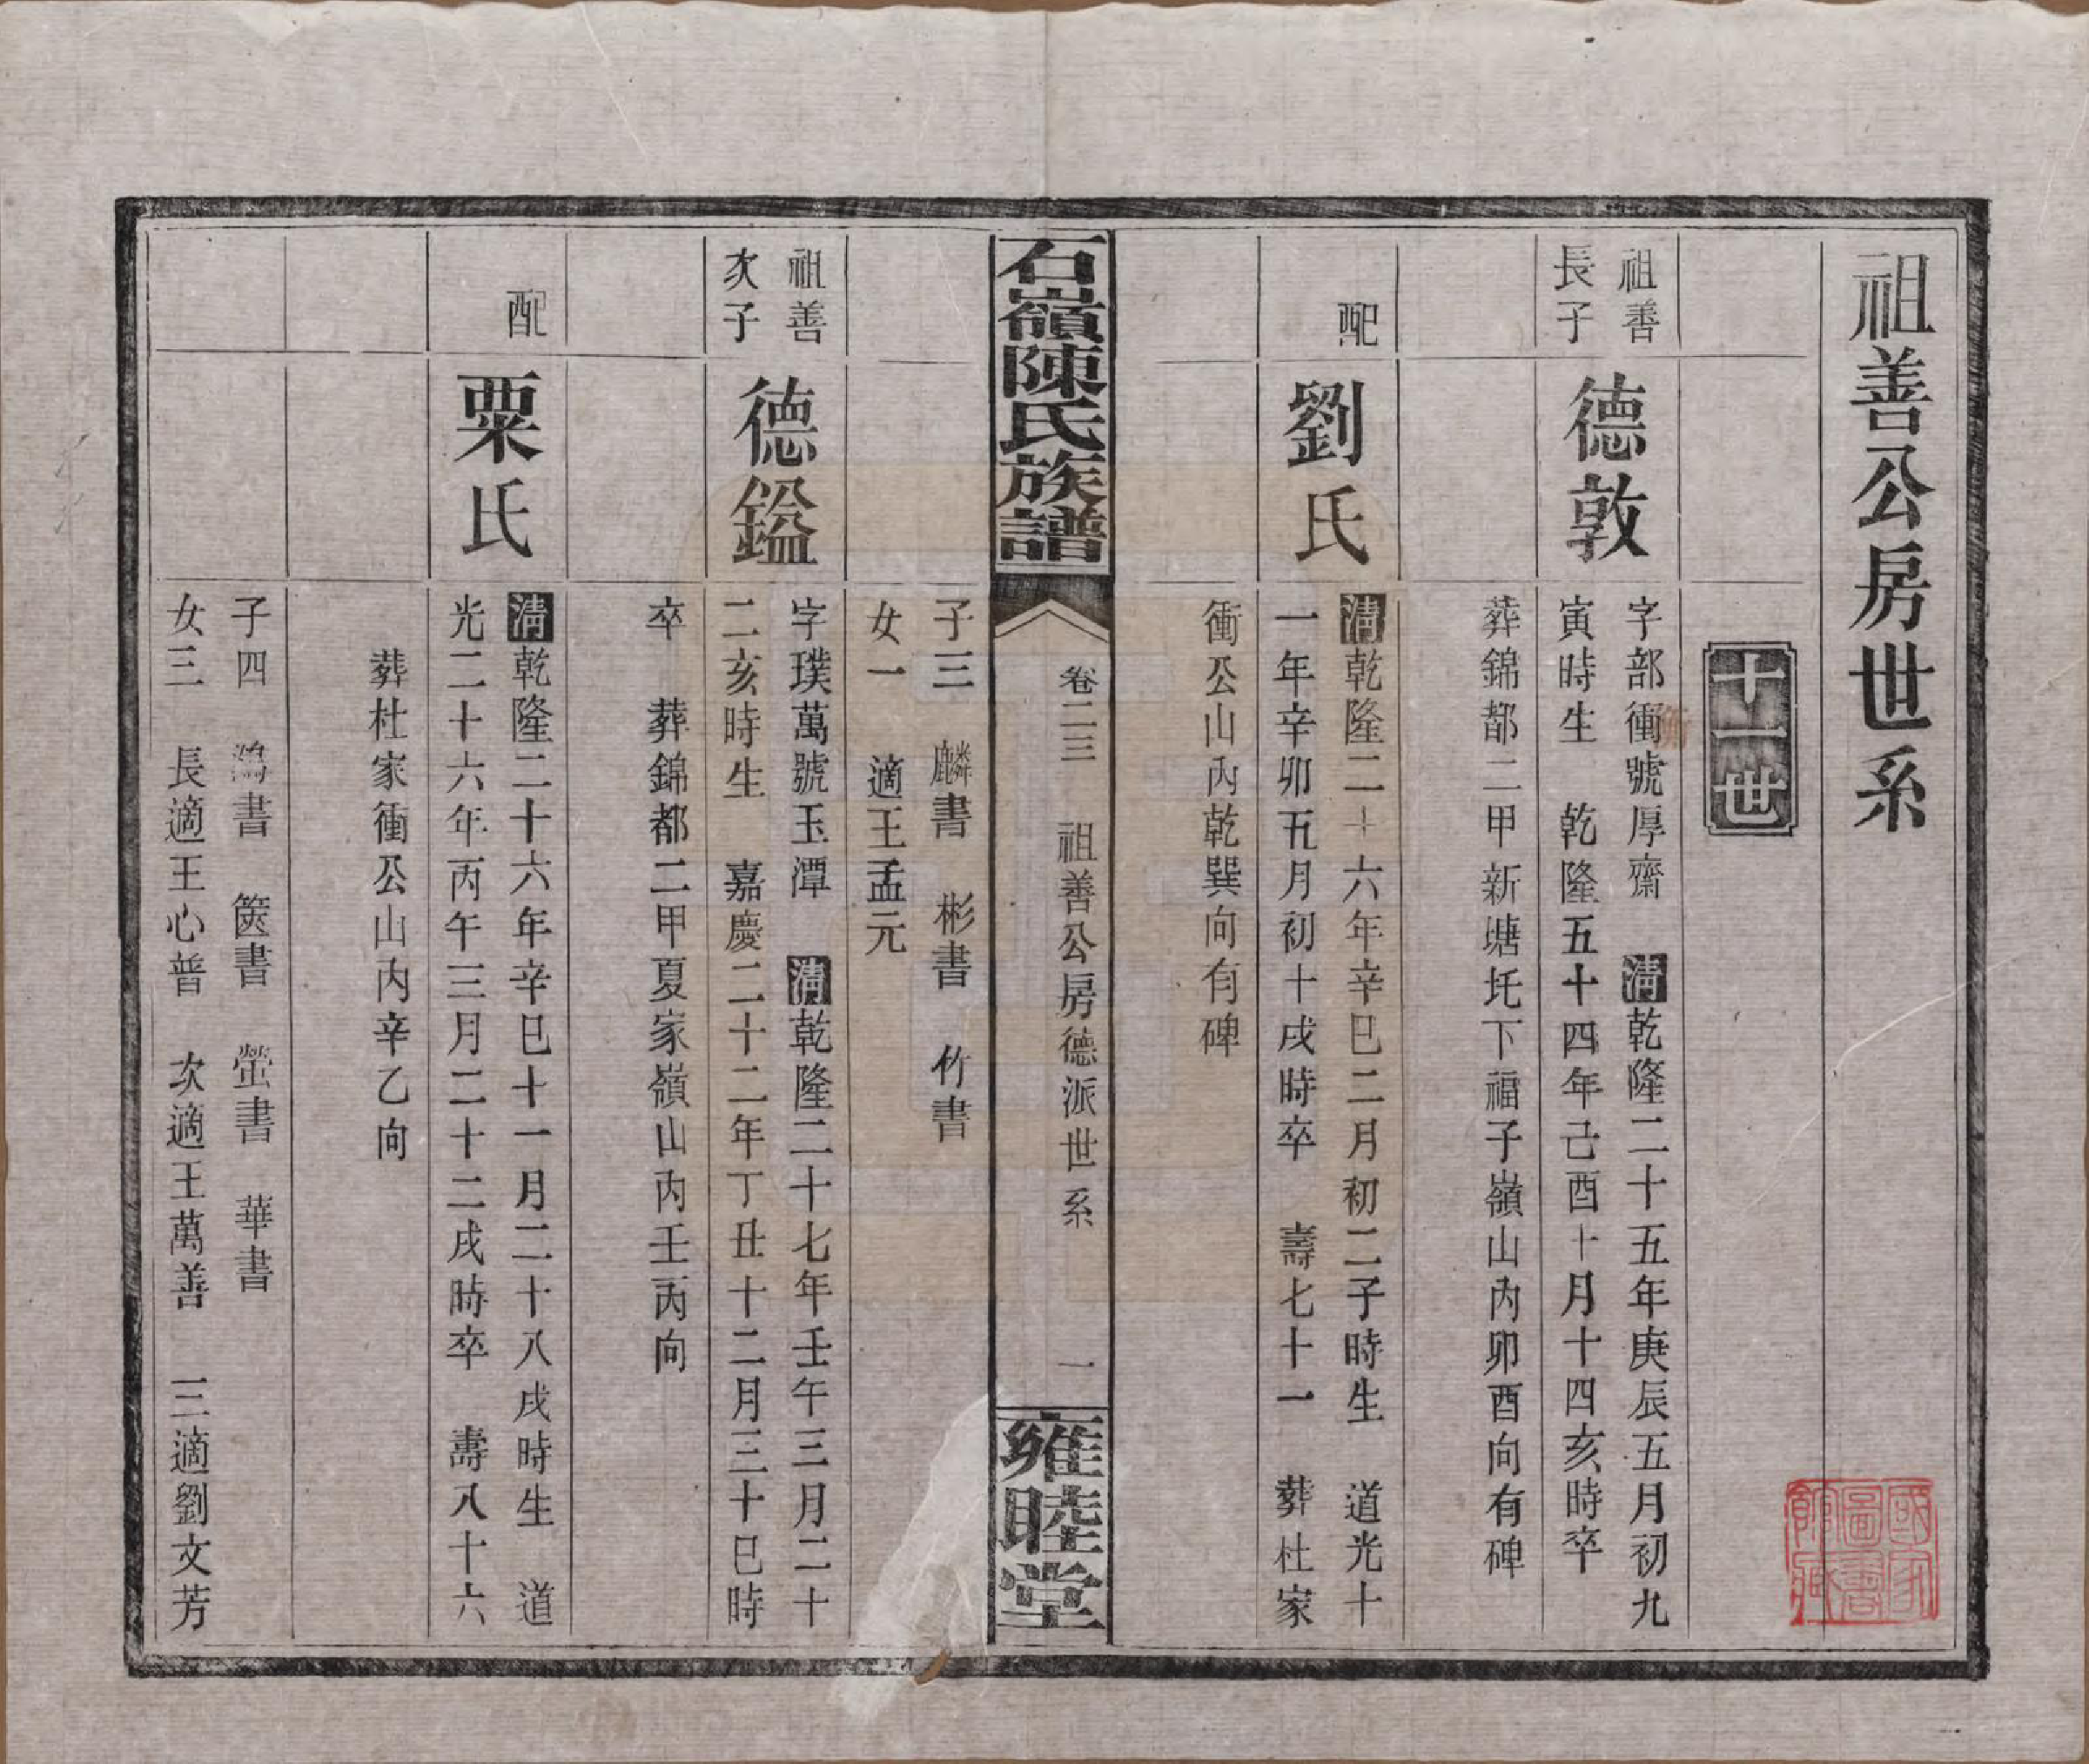 祖善公房世系
十一世
祖善
長子
德敦
字部衝號厚齋 清乾隆二十五年庚辰五月初九
寅時生 乾隆五十四年己酉十月十四亥時卒
葬錦都二甲新塘圫下福子嶺山內卯酉向有碑
配
劉氏
清乾隆二十六年辛巳二月初二子時生 道光十
一年辛卯五月初十戌時卒 壽七十一 葬杜家
衝公山內乾巽向有碑
石嶺陳氏族譜
卷二三 祖善公房德派世系
一
雍睦堂
子三 麟書 彬書 竹書
女一 適王孟元
祖善
次子
德鎰
字璞萬號玉潭 清乾隆二十七年壬午三月二十
二亥時生 嘉慶二十二年丁丑十二月三十巳時
卒 葬錦都二甲夏家嶺山內壬丙向
配
粟氏
清乾隆二十六年辛巳十一月二十八戌時生 道
光二十六年丙午三月二十二戌時卒 壽八十六
葬杜家衝公山內辛乙向
子四 鴻書 篋書 螢書 華書
女三 長適王心普 次適王萬善 三適劉文芳
國家圖書館藏